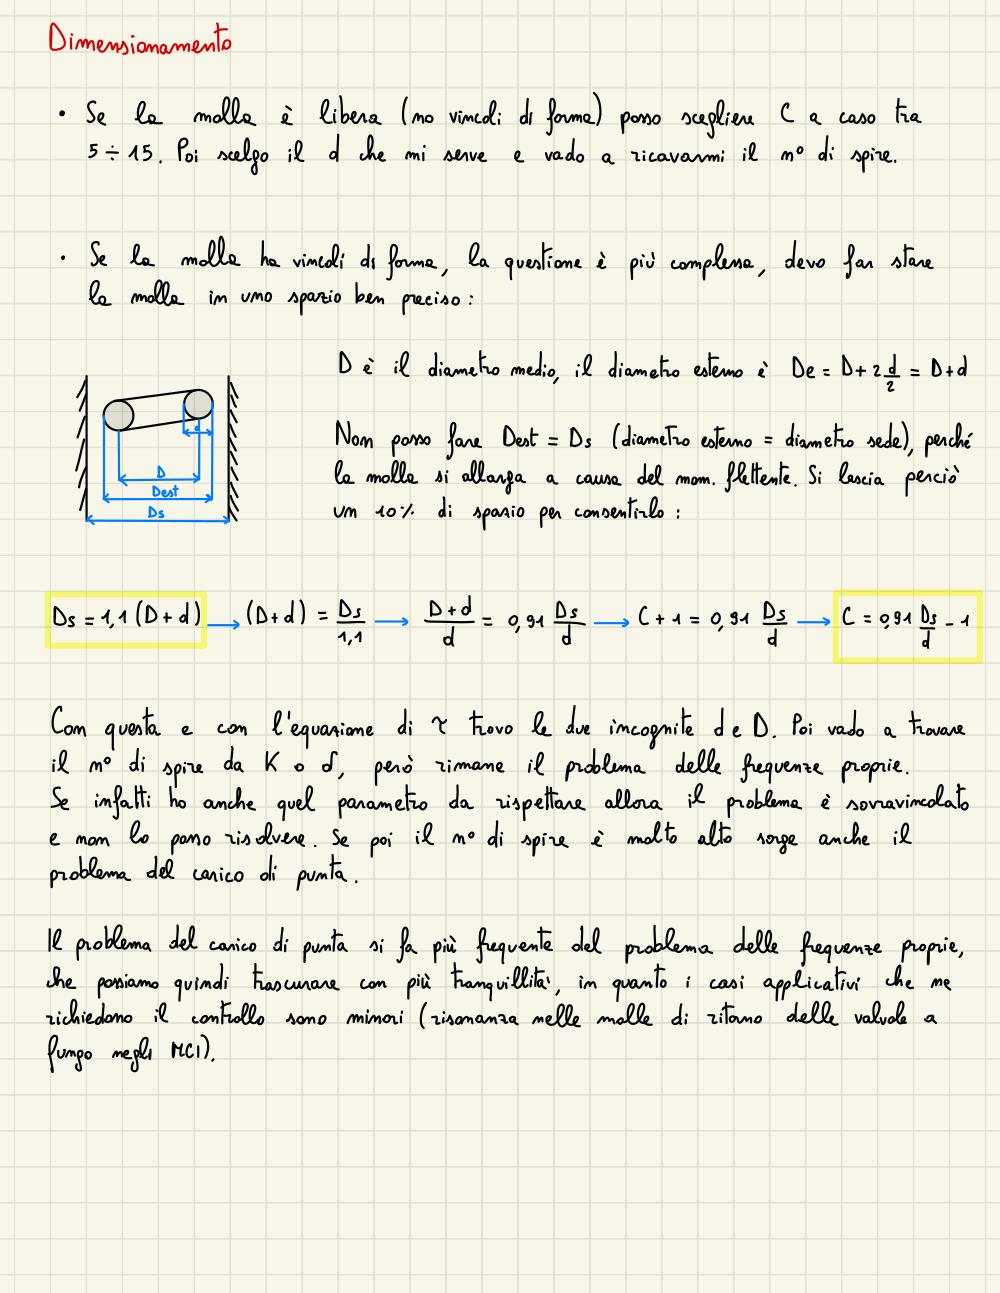 Dimensionamento
• Se la molla è libera (no vincoli di forma) posso scegliere C a caso tra
5 ÷ 15. Poi scelgo il d che mi serve e vado a ricavarmi il n° di spire.
• Se la molla ha vincoli di forma, la questione è più complessa, devo far stare
la molla in uno spazio ben preciso:
D è il diametro medio, il diametro esterno è De = D + 2 d/2 = D + d
Non posso fare Dest = Ds (diametro esterno = diametro sede), perché
la molla si allarga a causa del mom. flettente. Si lascia perciò
un 10% di spazio per consentirlo:
d
D
Dest
Ds
Ds = 1,1 (D + d) → (D + d) = Ds/1,1 → D + d/d = 0,91 Ds/d → C + 1 = 0,91 Ds/d → C = 0,91 Ds/d - 1
Con questa e con l'equazione di τ trovo le due incognite d e D. Poi vado a trovare
il n° di spire da K o δ, però rimane il problema delle frequenze proprie.
Se infatti ho anche quel parametro da rispettare allora il problema è sovravincolato
e non lo posso risolvere. Se poi il n° di spire è molto alto sorge anche il
problema del carico di punta.
Il problema del carico di punta si fa più frequente del problema delle frequenze proprie,
che possiamo quindi trascurare con più tranquillità, in quanto i casi applicativi che ne
richiedono il controllo sono minori (risonanza nelle molle di ritorno delle valvole a
fungo negli MCI).